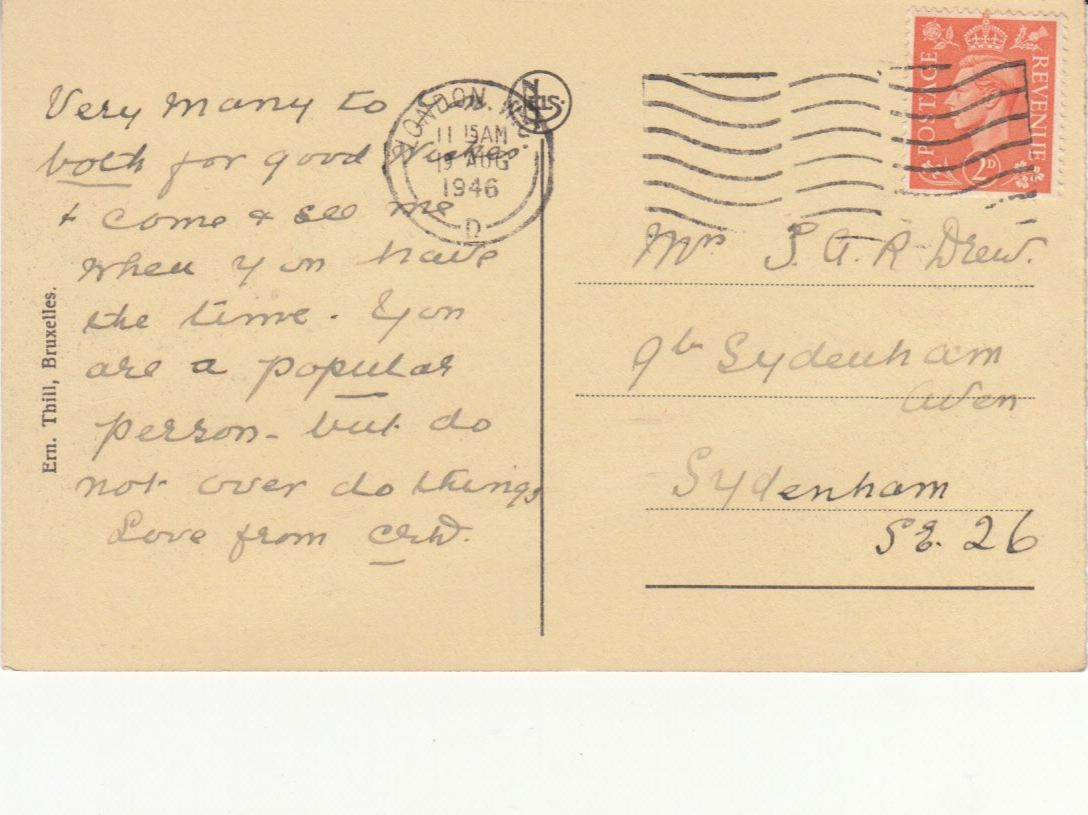 Very many to you
both for good wishes.
+ come & see me
when you have
the time. You
are a popular
person - but do
not over do things
Love from
Ern. Thill, Bruxelles.
LONDON. W.
11 15 AM
19 AUG
1946
D
POSTAGE REVENUE
2D
Mrs S. A. R. Drew.
Sydenham
Aven
Sydenham
S.E. 26